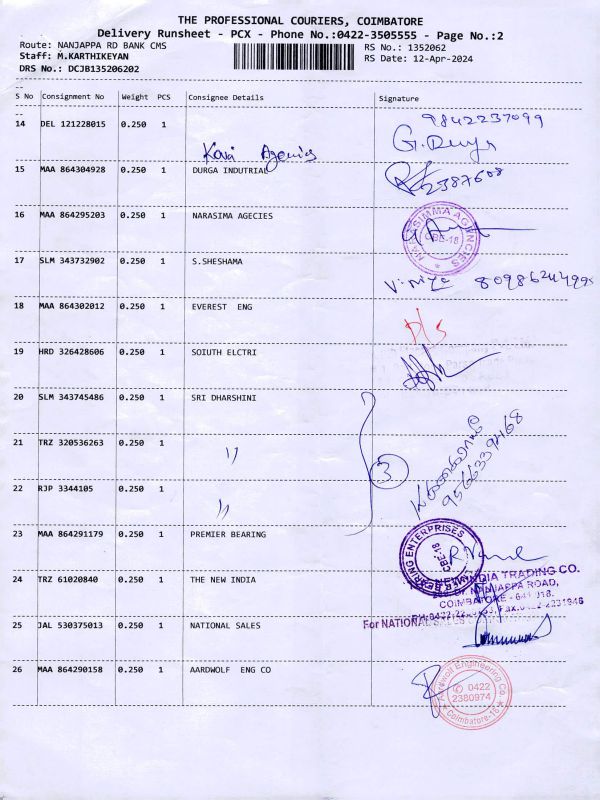 THE PROFESSIONAL COURIERS, COIMBATORE
Delivery Runsheet - PCX - Phone No.:0422-3505555 - Page No.:2
Route: NANJAPPA RD BANK CMS RS No.: 1352062
Staff: M.KARTHIKEYAN RS Date: 12-Apr-2024
DRS No.: DCJB135206202
S No Consignment No Weight PCS Consignee Details Signature
14 DEL 121228015 0.250 1 9842237099
15 MAA 864304928 0.250 1 DURGA INDUTRIAL
16 MAA 864295203 0.250 1 NARASIMA AGECIES
NARASIMMA AGENCIES
CBE-18
17 SLM 343732902 0.250 1 S.SHESHAMA
18 MAA 864302012 0.250 1 EVEREST ENG
19 HRD 326428606 0.250 1 SOIUTH ELCTRI
20 SLM 343745486 0.250 1 SRI DHARSHINI
21 TRZ 320536263 0.250 1 "
3
22 RJP 3344105 0.250 1 "
23 MAA 864291179 0.250 1 PREMIER BEARING
BEARING ENTERPRISES
CBE-18
24 TRZ 61020840 0.250 1 THE NEW INDIA
NEW INDIA TRADING CO.
NANJAPPA ROAD,
COIMBATORE - 641 018.
25 JAL 530375013 0.250 1 NATIONAL SALES
For NATIONAL
26 MAA 864290158 0.250 1 AARDWOLF ENG CO
Aardwolf Engineering Co.
0422
2380974
Coimbatore-18